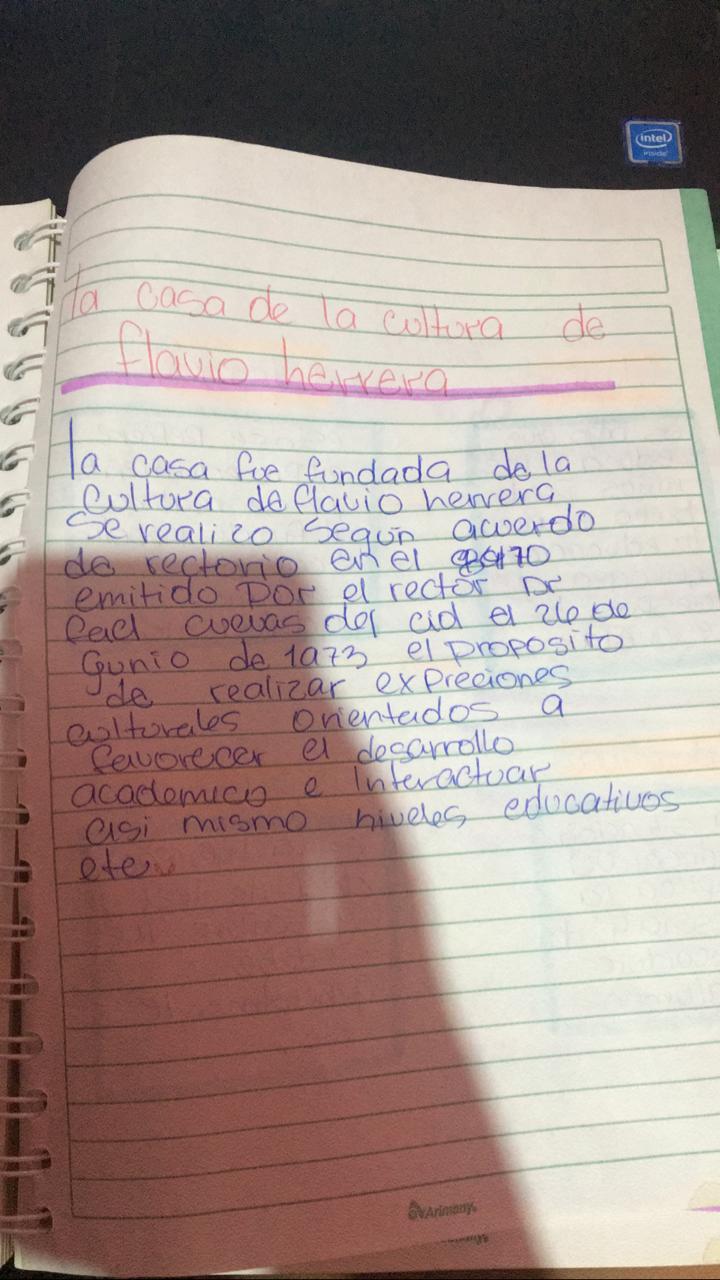 intel
inside
la casa de la cultura de
flavio herrera
la casa fue fundada de la
cultura de flavio herrera
se realizo según acuerdo
de rectorio en el 70
emitido por el rector Dr
cuevas del cid el 26 de
Gunio de 1973 el proposito
de realizar expreciones
culturales orientados a
favorecer el desarrollo
academico e Interactuar
asi mismo niveles educativos
etc
Arimany